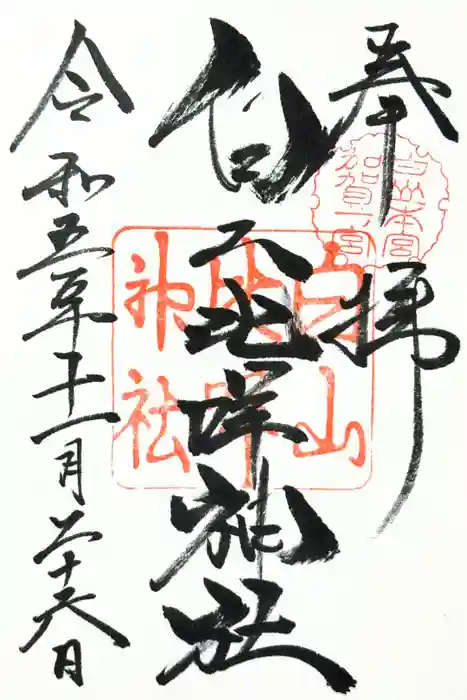 奉拝
白山本宮
加賀一宮
白山比咩神社
白山
比咩
神社
令和五年十一月二十六日